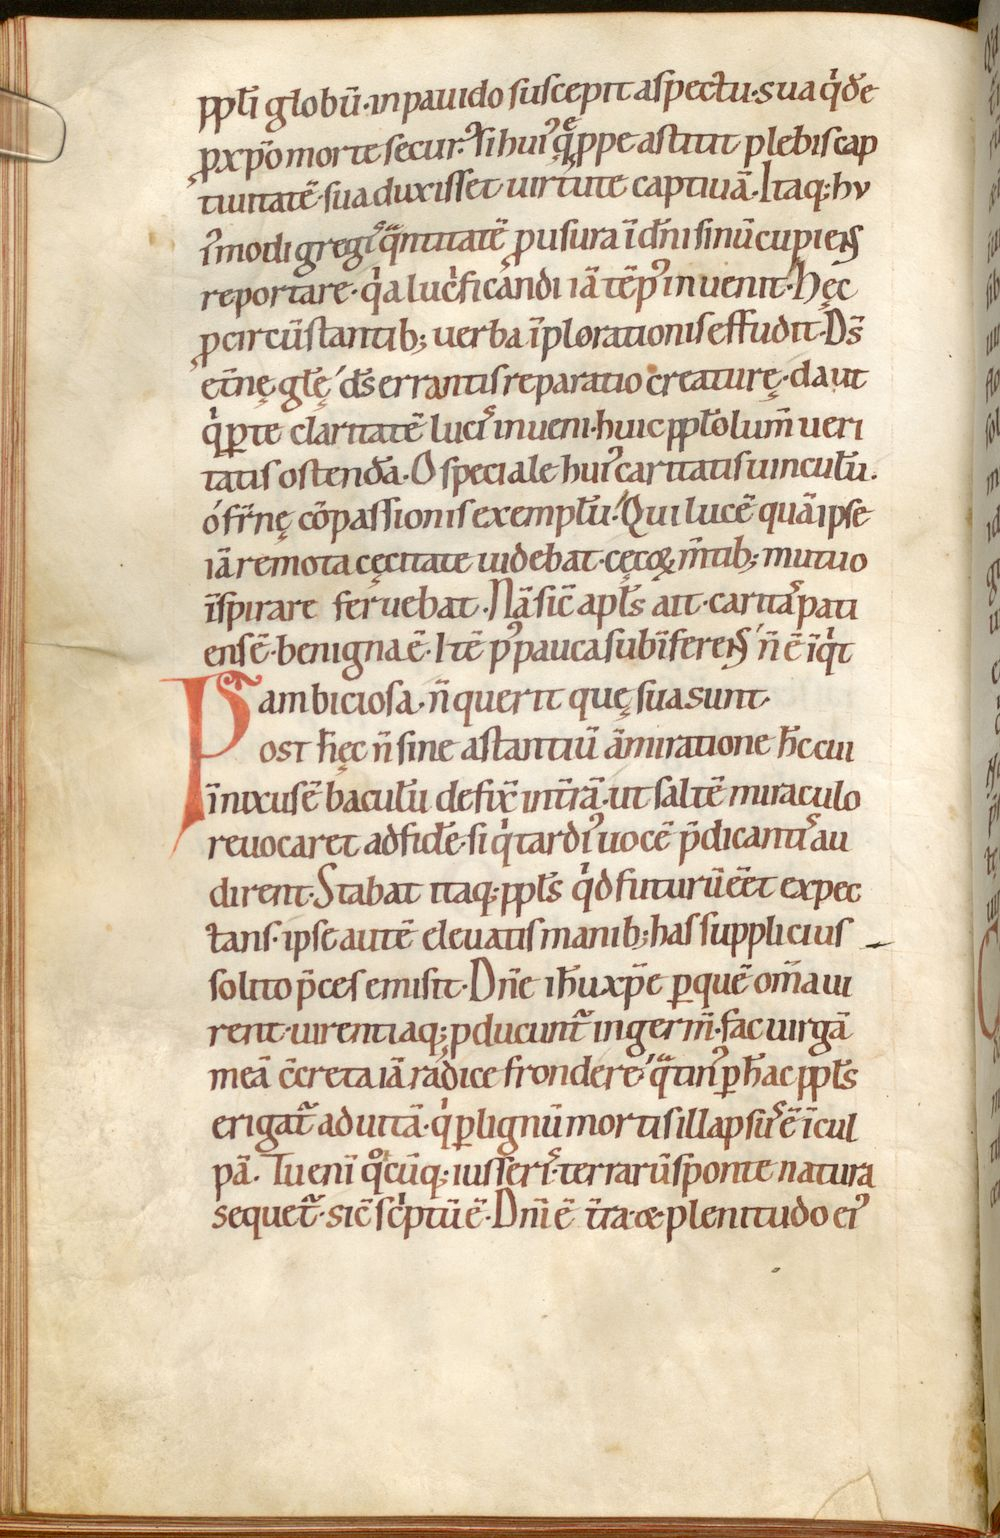 pplī globū·inpauido suscepit aspectu·sua qͥdē
ꝓ xp̄o morte securꝰ·si huiꝰ quę ꝓpe astitit plebis cap
tiuitatē·sua duxisset uirtute captiuā·Itaq;hu
iꝰmodi gregis quantitatē ꝓ usura ī dn̄i sinū cupiens
reportare·qͥa lucͥficandi iā tēpꝰ inuenit·Hęc
ꝓ circūstantib; uerba īplorationis effudit·Ds̄
et̄nę gl̄ę ds̄ errantis reparatio creaturę·da ut
qͥ ꝑ te claritatē lucis inueni·huic ppl̄o lum̄ ueri
tatis ostendā·O speciale huiꝰ caritatis uinculū·
ó fr̄nę cōpassionis exemplū·Qui lucē quā ipse
iā remota cęcitate uidebat·cęcoꝝ m̄tib; mutuo
īspirare feruebat·Nā sic̄ apl̄s ait·caritas pati
ens ē·benigna ē·Itē pꝰ pauca subīferens n̄ ē īqͥt
ambiciosa·n̄ querit quę sua sunt·
Post h̄ęc n̄ sine astantiū āmiratione h̄c cui
īnixus ē baculū defix̄ in t̄rā·ut saltē miraculo
reuocaret ad fidē·si qͥ tardiꝰ uocē p̄dicantis au
dirent·Stabat itaq; ppl̄s qͥd futurū eēt expec
tans·ipse autē eleuatis manib; has supplicius
solito p̄ces emisit·Dn̄e ih̄u xp̄e ꝑ quē om̄a ui
rent·uirentiaq; ꝓducunt᷑ in germ̄·fac uirgā
meā c̄creta iā radice frondere·quatinꝰ ꝑ h̄ac ppl̄s
erigat᷑ ad uitā·qͥ ꝑ lignū mortis illapsus ē ī cul
pā·Tu eni qͦcūq; iusseris·terrarū sponte natura
sequet᷑·sic̄ scͥptū ē·Dn̄i ē t̄ra·& plenitudo eiꝰ